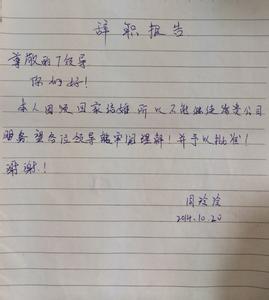 辞职报告
尊敬的领导
你们好!
本人因须回家结婚所以不能继续为贵公司
服务望各位领导能够理解!并予以批准!
谢谢!
周玲玲
2014.10.20